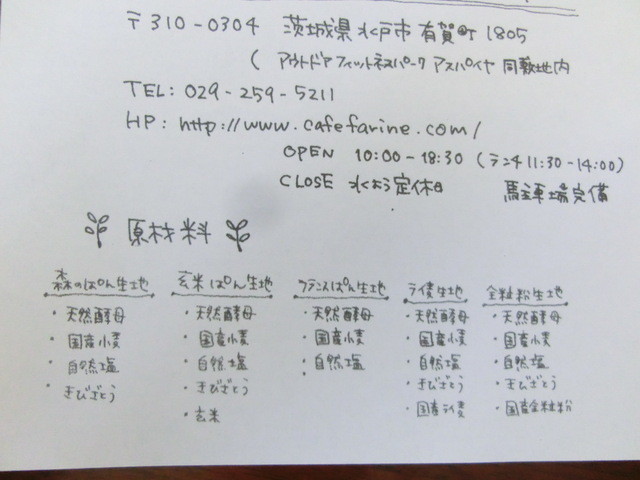 〒310-0304 茨城県水戸市有賀町1805
( アウトドアフィットネスパーク アスパイヤ 同敷地内
TEL: 029-259-5211
HP: http://www.cafefarine.com/
OPEN 10:00-18:30 (ランチ11:30-14:00)
CLOSE 水よう定休日 駐車場完備
原材料
森のぱん生地 玄米ぱん生地 フランスぱん生地 ライ麦生地 全粒粉生地
・天然酵母 ・天然酵母 ・天然酵母 ・天然酵母 ・天然酵母
・国産小麦 ・国産小麦 ・国産小麦 ・国産小麦 ・国産小麦
・自然塩 ・自然塩 ・自然塩 ・自然塩 ・自然塩
・きびざとう ・きびざとう ・きびざとう ・きびざとう
・玄米 ・国産ライ麦 ・国産全粒粉